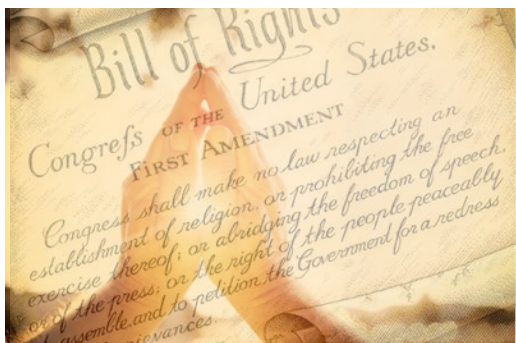 Bill of Rights
Congrefs OF THE United States,
FIRST AMENDMENT
Congress shall make no law respecting an
establishment of religion, or prohibiting the free
exercise thereof; or abridging the freedom of speech,
or of the press; or the right of the people peaceably
to assemble, and to petition the Government for a redress
grievances.